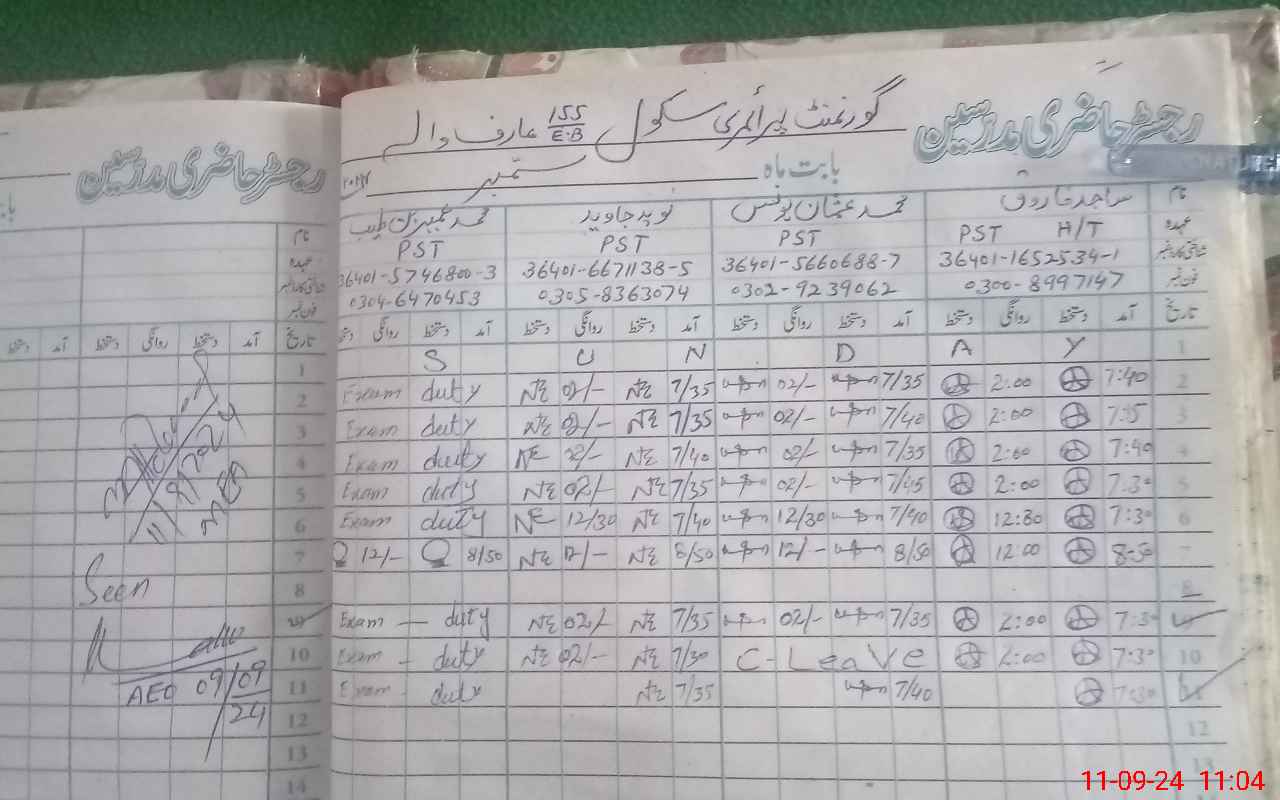 گورنمنٹ پرائمری سکول 155/E.B عارف والہ
رجسٹر حاضری مدرسین
رجسٹر حاضری مدرسین
بابت ماہ ستمبر
نام ساجد فاروق محمد عثمان یونس نوید جاوید
عہدہ H/T PST PST PST PST
36401-1652534-1 36401-5660688-7 36401-6671138-5 36401-5746800-3
فون نمبر 0300-8997147 0302-9239062 0305-8363074 0304-6470453
تاریخ آمد دستخط روانگی دستخط آمد دستخط روانگی دستخط آمد دستخط روانگی دستخط آمد دستخط روانگی
تاریخ آمد دستخط روانگی دستخط آمد دستخط
S U N D A Y 1
Exam duty NE 02/- NE 7/35 02/- 7/35 2:00 7:40 2
Exam duty NE 02/- NE 7/35 02/- 7/40 2:00 3
Exam duty NE NE 7/40 02/- 7/35 2:00 7:40 4
Exam duty NE 02/- NE 7/35 02/- 7/45 2:00 7:30 5
Exam duty NE 12/30 NE 7/40 12/30 7/40 12:30 7:30 6
12/- 8/50 NE 12/- NE 8/50 12/- 8/50 12:00 8:50 7
8
Exam — duty NE 02/- NE 7/35 02/- 7/35 2:00 7:30
Exam - duty NE 02/- NE 7/30 C-LeaVe 2:00 7:30 10
Exam duty NE 7/35 7/40 7:30
12
13
نام
عہدہ
فون نمبر
1
2
3
4
5
6
7
Seen 8
10
AEO 09/09/24 11
12
13
14
11/9/2024
MEA
11-09-24 11:04